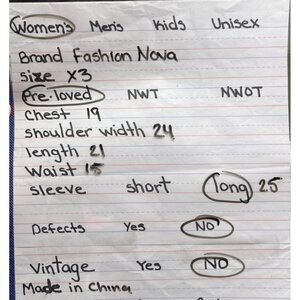 Women's Men's Kids Unisex
Brand Fashion Nova
size X3
Pre-loved NWT NWOT
Chest 19
shoulder width 24
length 21
Waist 15
sleeve short long 25
Defects Yes NO
Vintage Yes NO
Made in China